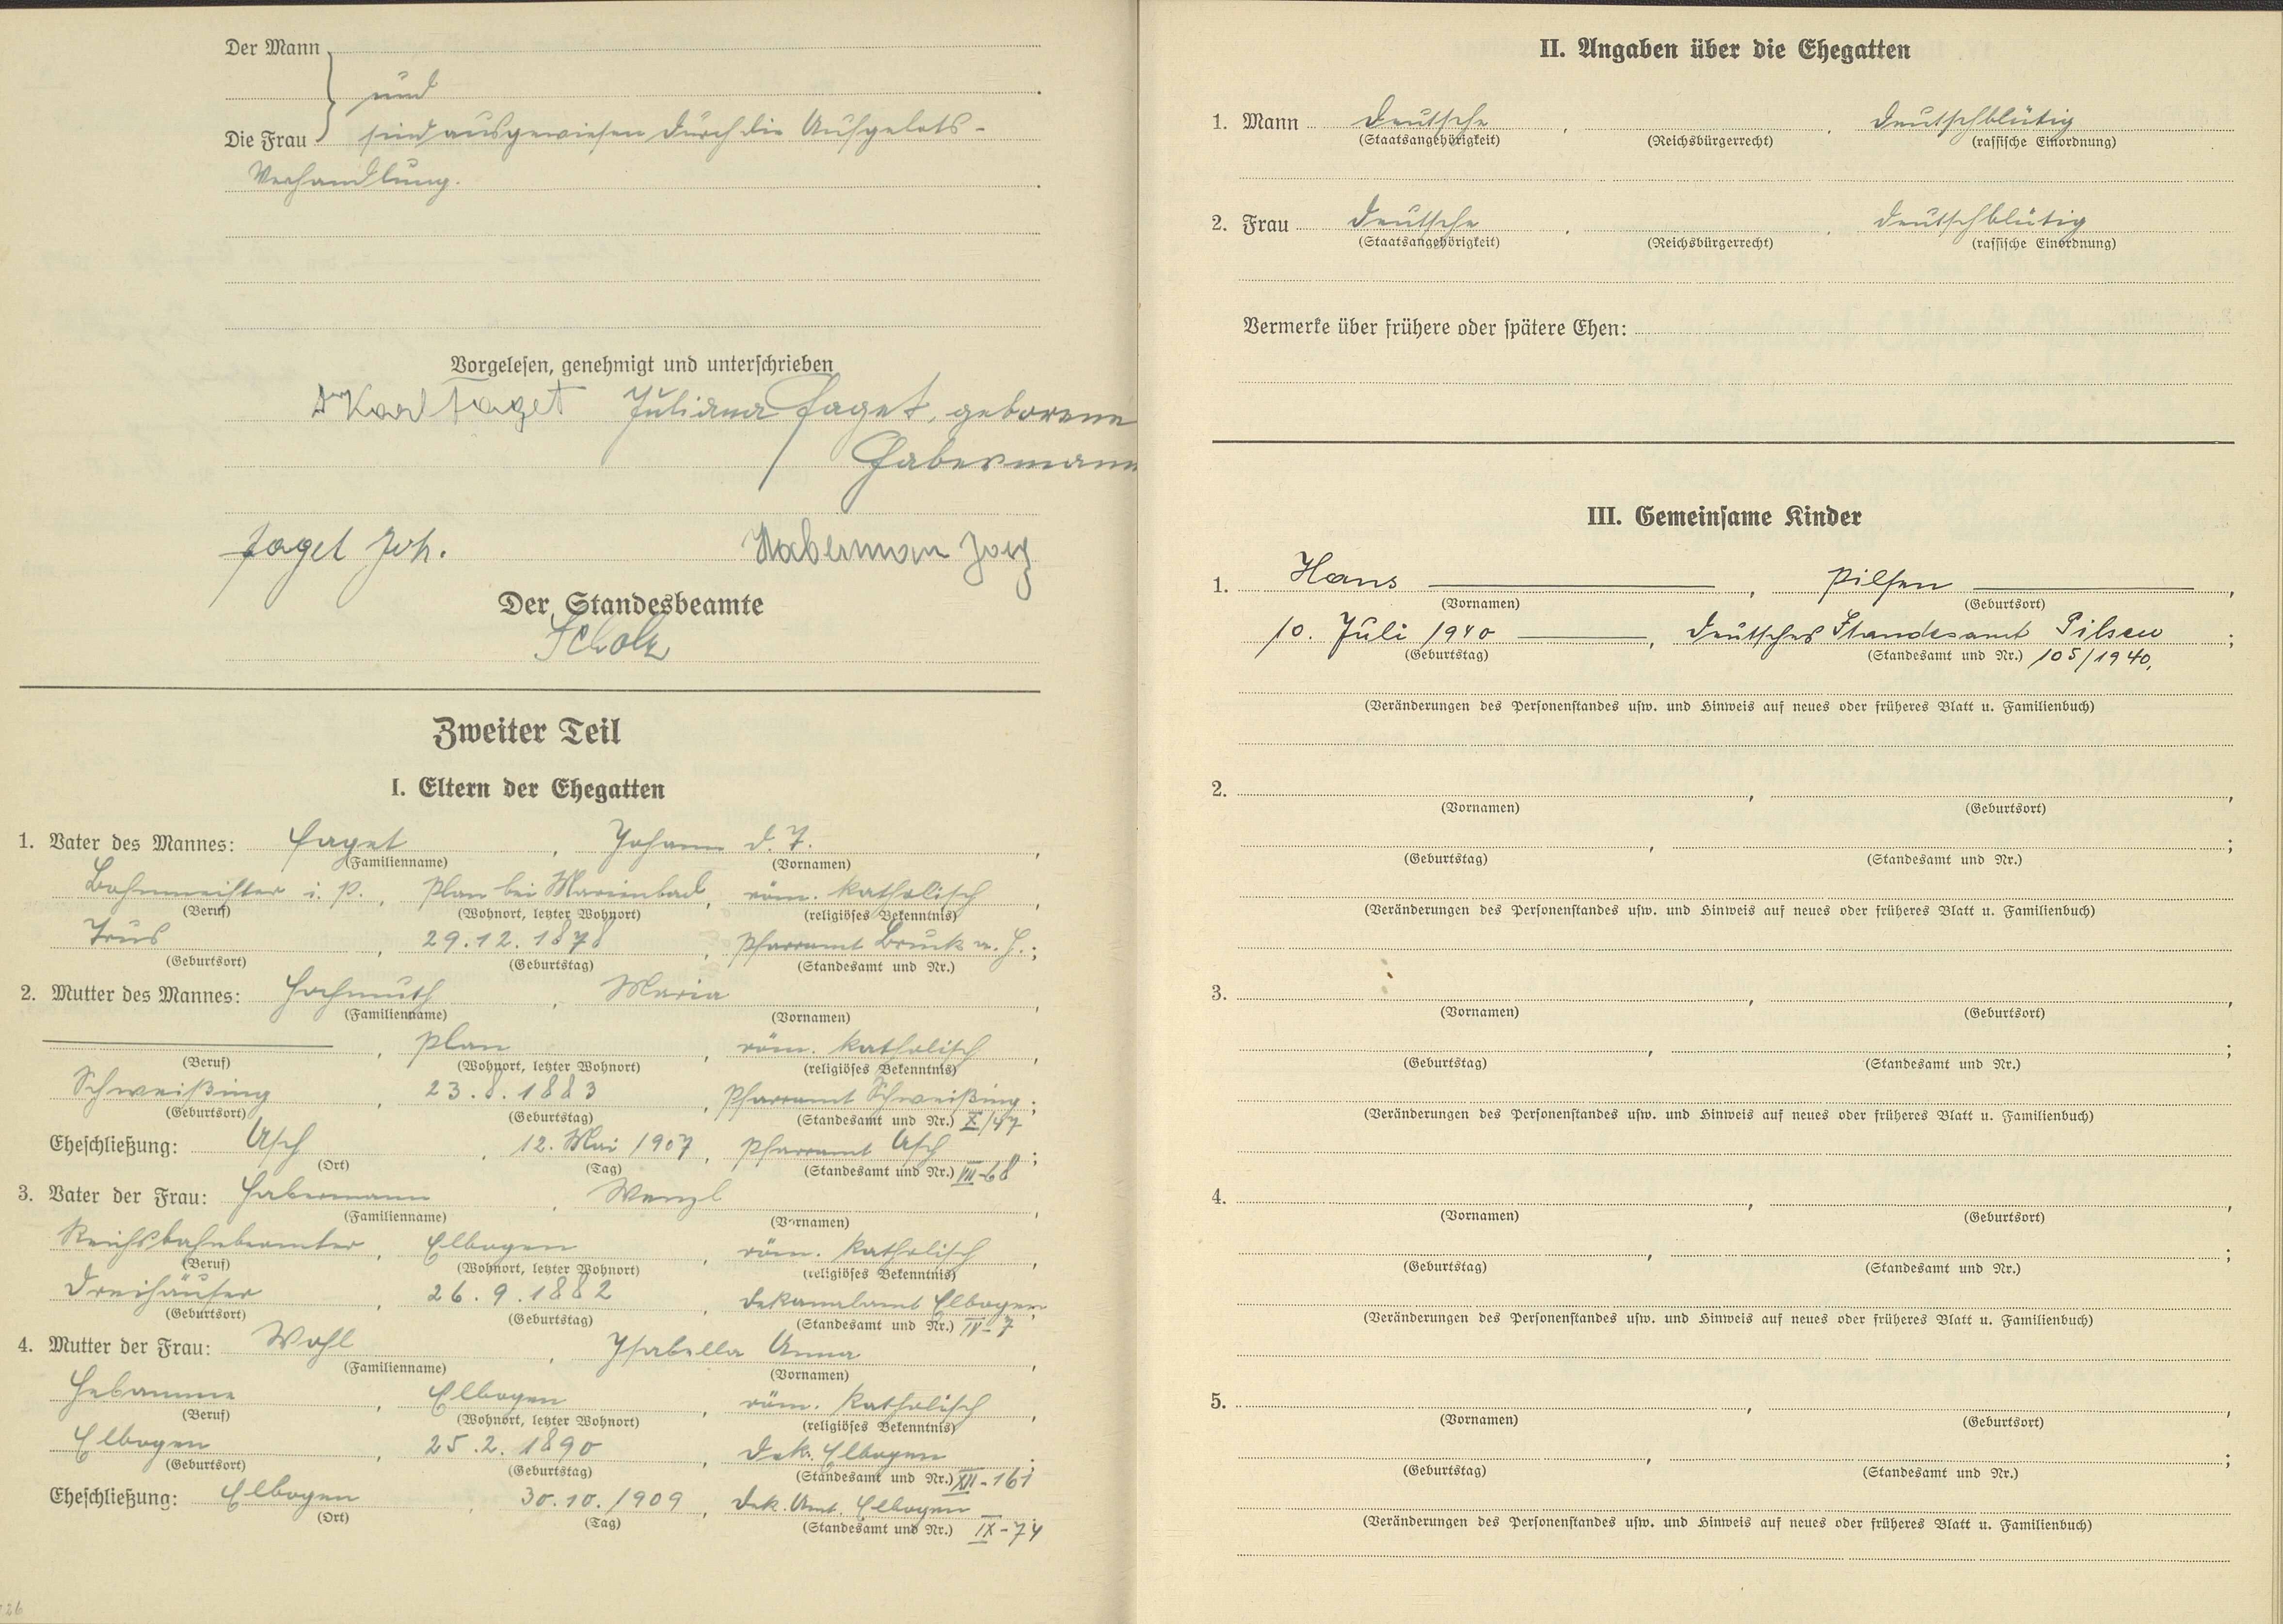 Der Mann
und
Die Frau sind ausgewiesen durch die Aufgebots-
Verhandlung.
Vorgelesen, genehmigt und unterschrieben
Dr Karl Faget Juliana Faget, geborene
Habermann
Faget Joh. Haberman
Der Standesbeamte
Scholz
Zweiter Teil
I. Eltern der Ehegatten
1. Vater des Mannes: Faget, Johann d. J.,
(Familienname) (Vornamen)
Bahnmeister i. P., Plan bei Marienbad, röm. katholisch,
(Beruf) (Wohnort, letzter Wohnort) (religiöses Bekenntnis)
29.12.1878, Pfarramt Bruck a. H.;
(Geburtsort) (Geburtstag) (Standesamt und Nr.)
2. Mutter des Mannes: Hochmuth, Maria,
(Familienname) (Vornamen)
, Plan, röm. katholisch,
(Beruf) (Wohnort, letzter Wohnort) (religiöses Bekenntnis)
Schweißing, 23.8.1883, Pfarramt Schweißing;
(Geburtsort) (Geburtstag) (Standesamt und Nr.) X/47
Eheschließung: Asch, 12. Mai 1907, Pfarramt Asch;
(Ort) (Tag) (Standesamt und Nr.) VII-68
3. Vater der Frau: Habermann, Wenzl,
(Familienname) (Vornamen)
Reichsbahnbeamter, Elbogen, röm. katholisch,
(Beruf) (Wohnort, letzter Wohnort) (religiöses Bekenntnis)
Dreihäuser, 26.9.1882, Dekanalamt Elbogen;
(Geburtsort) (Geburtstag) (Standesamt und Nr.) IV-7
4. Mutter der Frau: Wohl, Isabella Anna,
(Familienname) (Vornamen)
Hebamme, Elbogen, röm. katholisch,
(Beruf) (Wohnort, letzter Wohnort) (religiöses Bekenntnis)
Elbogen, 25.2.1890, Dek. Elbogen;
(Geburtsort) (Geburtstag) (Standesamt und Nr.) XII-161
Eheschließung: Elbogen, 30.10.1909, Dek. Amt. Elbogen;
(Ort) (Tag) (Standesamt und Nr.) IX-74
26
II. Angaben über die Ehegatten
1. Mann Deutsche, , Deutschblütig
(Staatsangehörigkeit) (Reichsbürgerrecht) (rassische Einordnung)
2. Frau Deutsche, , Deutschblütig
(Staatsangehörigkeit) (Reichsbürgerrecht) (rassische Einordnung)
Vermerke über frühere oder spätere Ehen:
III. Gemeinsame Kinder
1. Hans, Pilsen,
(Vornamen) (Geburtsort)
10. Juli 1940, Deutsches Standesamt Pilsen;
(Geburtstag) (Standesamt und Nr.) 105/1940.
(Veränderungen des Personenstandes usw. und Hinweis auf neues oder früheres Blatt u. Familienbuch)
2. , ,
(Vornamen) (Geburtsort)
, ;
(Geburtstag) (Standesamt und Nr.)
(Veränderungen des Personenstandes usw. und Hinweis auf neues oder früheres Blatt u. Familienbuch)
3. , ,
(Vornamen) (Geburtsort)
, ;
(Geburtstag) (Standesamt und Nr.)
(Veränderungen des Personenstandes usw. und Hinweis auf neues oder früheres Blatt u. Familienbuch)
4. , ,
(Vornamen) (Geburtsort)
, ;
(Geburtstag) (Standesamt und Nr.)
(Veränderungen des Personenstandes usw. und Hinweis auf neues oder früheres Blatt u. Familienbuch)
5. , ,
(Vornamen) (Geburtsort)
, ;
(Geburtstag) (Standesamt und Nr.)
(Veränderungen des Personenstandes usw. und Hinweis auf neues oder früheres Blatt u. Familienbuch)